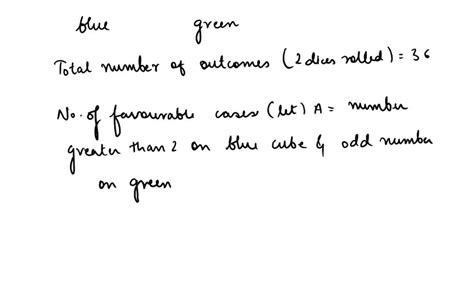 blue green
Total number of outcomes (2 dices rolled) = 36
No. of favourable cases (let) A = number
greater than 2 on blue cube & odd number
on green